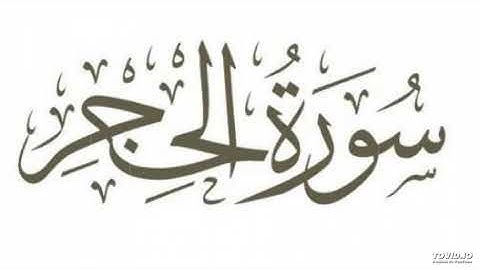 سُورَةُ الحِجْرِ
TOVID.IO